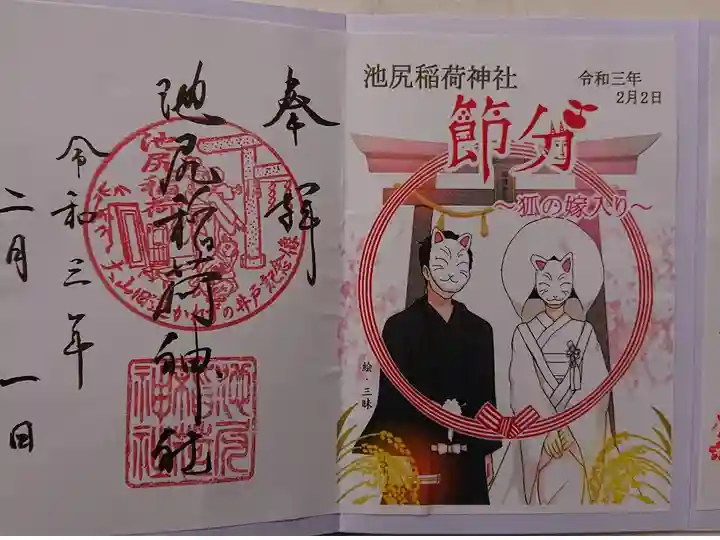 奉拝
池尻稲荷神社
令和三年
二月一日
池尻稲荷
大山街道かれずの井戸
池尻稲荷神社
池尻稲荷神社
令和三年
2月2日
節分
〜狐の嫁入り〜
絵・三昧